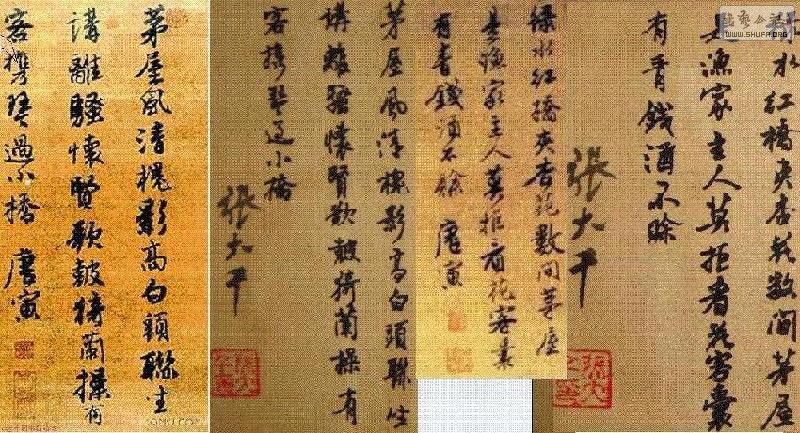 WWW.SHUFA.ORG
水紅橋夾杏花數間茅屋
是漁家主人莫拒看花客囊
有青錢酒不賒
張大平
綠水紅橋夾杏花數間茅屋
是漁家主人莫拒看花客囊
有青錢酒不賒 唐寅
茅屋風清槐影高白頭聯坐
講離騷懷賢歌皷猗蘭操有
客携琴過小橋
張大平
茅屋風清槐影高白頭聯坐
講離騷懷賢歌皷猗蘭操有
客携琴過小橋 唐寅